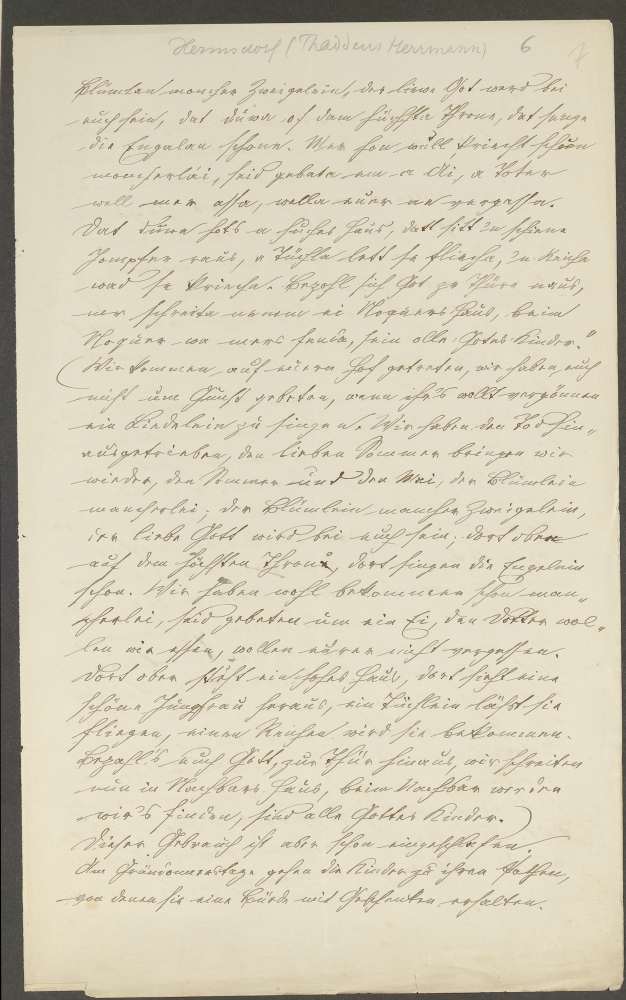 Hermsdorf (Thaddeus Herrmann) 6 7
Blümlan moncher Zweigelein, der liewe Got werd bei
euch sein, dat duwa of dam hüchsta Throne, dat senge
die Engalan schone. Mer hon wull kriecht schon
moncherlei, seid gebata em a Ai, a Toter
well mer assa, wella euer ne vergassa.
Dat duwa hots a huches Haus, datt sitt 'ne schiene
Jompfer raus, a Tüchla lett se fliecha, 'n Reicha
wad se kriecha. Bezohl sich Got zer Thüre naus,
mer schreita nu ei Noppers Haus, beim
Nopper wa mers fenda, sein olle Gotes Kinder."
(Wir kommen auf euern Hof getreten, wir haben euch
nicht um Gunst gebeten, wenn ihr's wollt vergönnen
ein Liedelein zu singen. Wir haben den Tod hin-
ausgetrieben, den lieben Sommer bringen wir
wieder, den Sommer und den Mai, der Blümlein
mancherlei; der Blümlein mancher Zweigelein,
der liebe Gott wird bei euch sein; dort oben
auf dem höchsten Throne, dort singen die Engelein
schon. Wir haben wohl bekommen schon man-
cherlei, seid gebeten um ein Ei, den Dotter wol-
len wir essen, wollen eurer nicht vergessen.
Dort oben steht ein hohes Haus, dort sieht eine
schöne Jungfrau heraus, ein Tüchlein läßt sie
fliegen, einen Reichen wird sie bekommen.
Bezahl's euch Gott, zur Thür hinaus, wir schreiten
nun in Nachbars Haus, beim Nachbar werden
wir's finden, sind alle Gottes Kinder.)
Dieser Gebrauch ist aber schon eingeschlafen.
Am Gründonnerstage gehen die Kinder zu ihren Pathen,
von denen sie eine Bürde mit Geschenken erhalten.